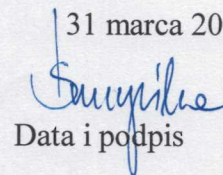 31 marca 20
Data i podpis